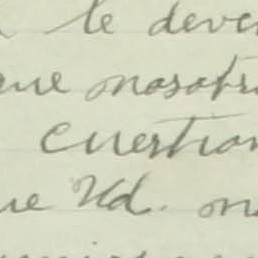 le deve
que nosotr
cuestion
ue Ud. no